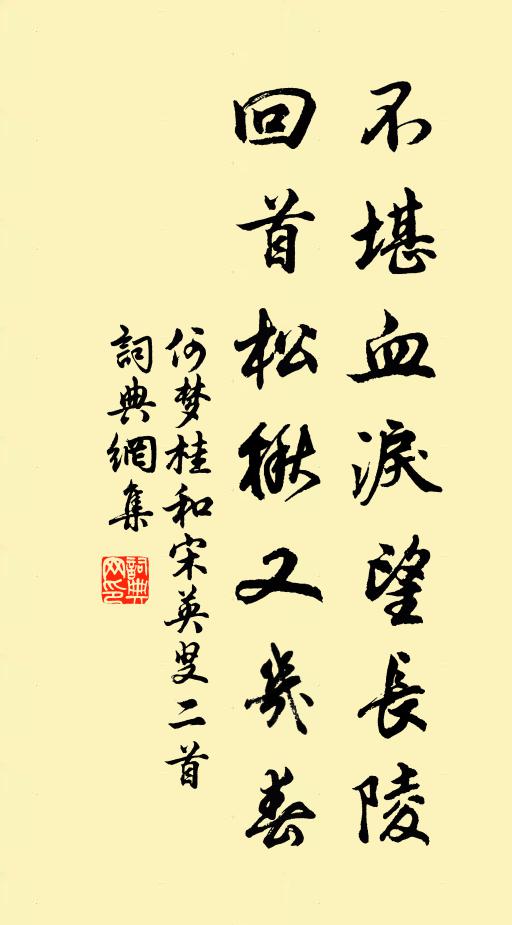 不堪血淚望長陵
回首松楸又幾春
何梦桂和宋英叟二首
詞典網集
詞典网印